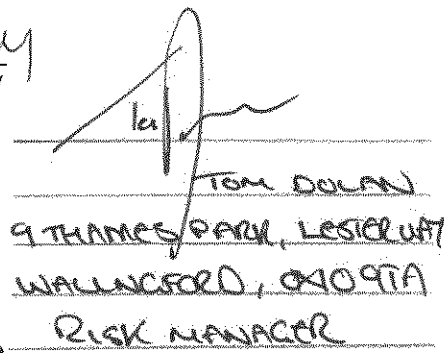 TOM DOLAN
9 THAMES PARK, LESTER WAY
WALLINGFORD, OX10 9TA
RISK MANAGER